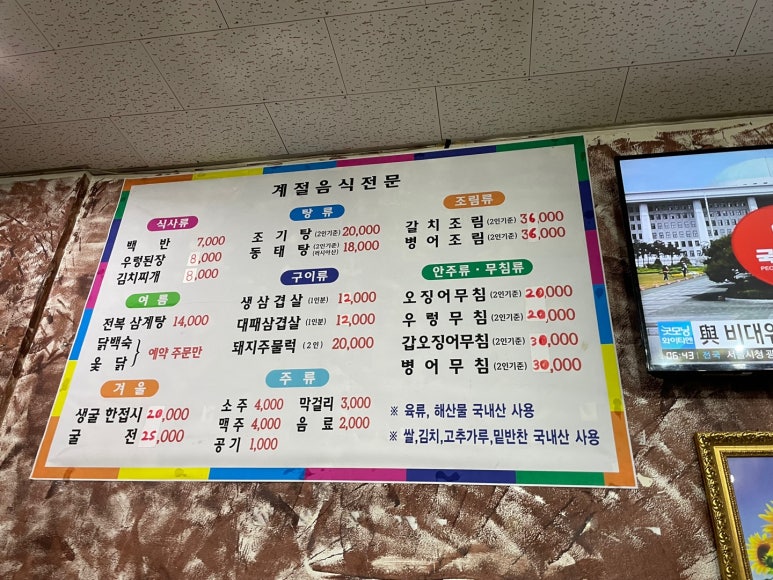 계절음식전문
식사류
백 반 7,000
우렁된장 8,000
김치찌개 8,000
여름
전복 삼계탕 14,000
닭백숙
옻닭
예약 주문만
겨울
생굴 한접시 20,000
굴 전 25,000
탕류
조기탕 (2인기준) 20,000
동태탕 (2인기준) (러시아산) 18,000
구이류
생삼겹살 (1인분) 12,000
대패삼겹살 (1인분) 12,000
돼지주물럭 (2인) 20,000
주류
소주 4,000 막걸리 3,000
맥주 4,000 음료 2,000
공기 1,000
조림류
갈치조림 (2인기준) 36,000
병어조림 (2인기준) 36,000
안주류·무침류
오징어무침 (2인기준) 20,000
우렁무침 (2인기준) 20,000
갑오징어무침 (2인기준) 30,000
병어무침 (2인기준) 30,000
※ 육류, 해산물 국내산 사용
※ 쌀,김치,고추가루,밑반찬 국내산 사용
굿모닝
와이티엔
與 비대위
06:43 전국 서울시청 광